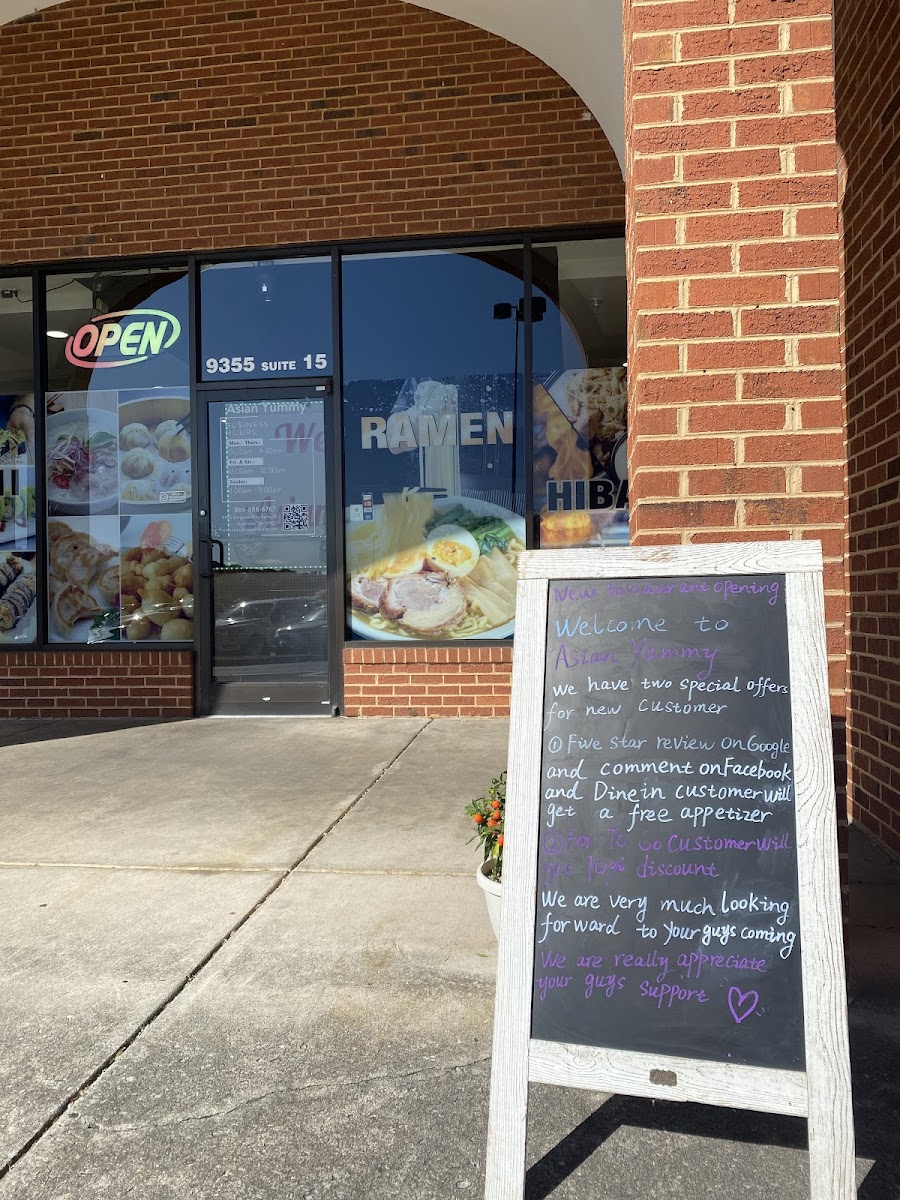 OPEN
9355 SUITE 15
Asian Yummy
BUSINESS
HOURS
Mon. - Thurs.
Fri. & Sat.
Sunday
865-888-6767
RAMEN
HIBA
New restaurant opening
Welcome to
Asian Yummy
we have two special offers
for new customer
① Five star review on Google
and comment on Facebook
and Dine in customer will
get a free appetizer
② for To Go customer will
get 10% discount
We are very much looking
forward to your guys coming
We are really appreciate
your guys support ♡